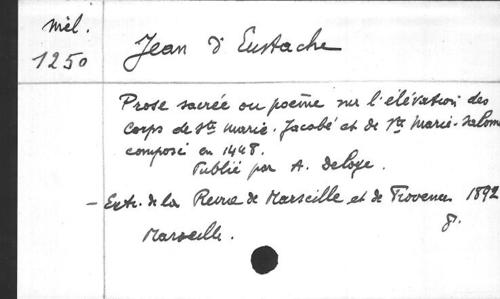 Mél.
1250
Jean d'Eustache
Prose sacrée ou poème sur l'élévation des
corps de Ste Marie-Jacobé et de Ste Marie-Salomé
composé en 1448.
Publié par A. Deloye.
- Extr. de la Revue de Marseille et de Provence 1892
8°.
Marseille.